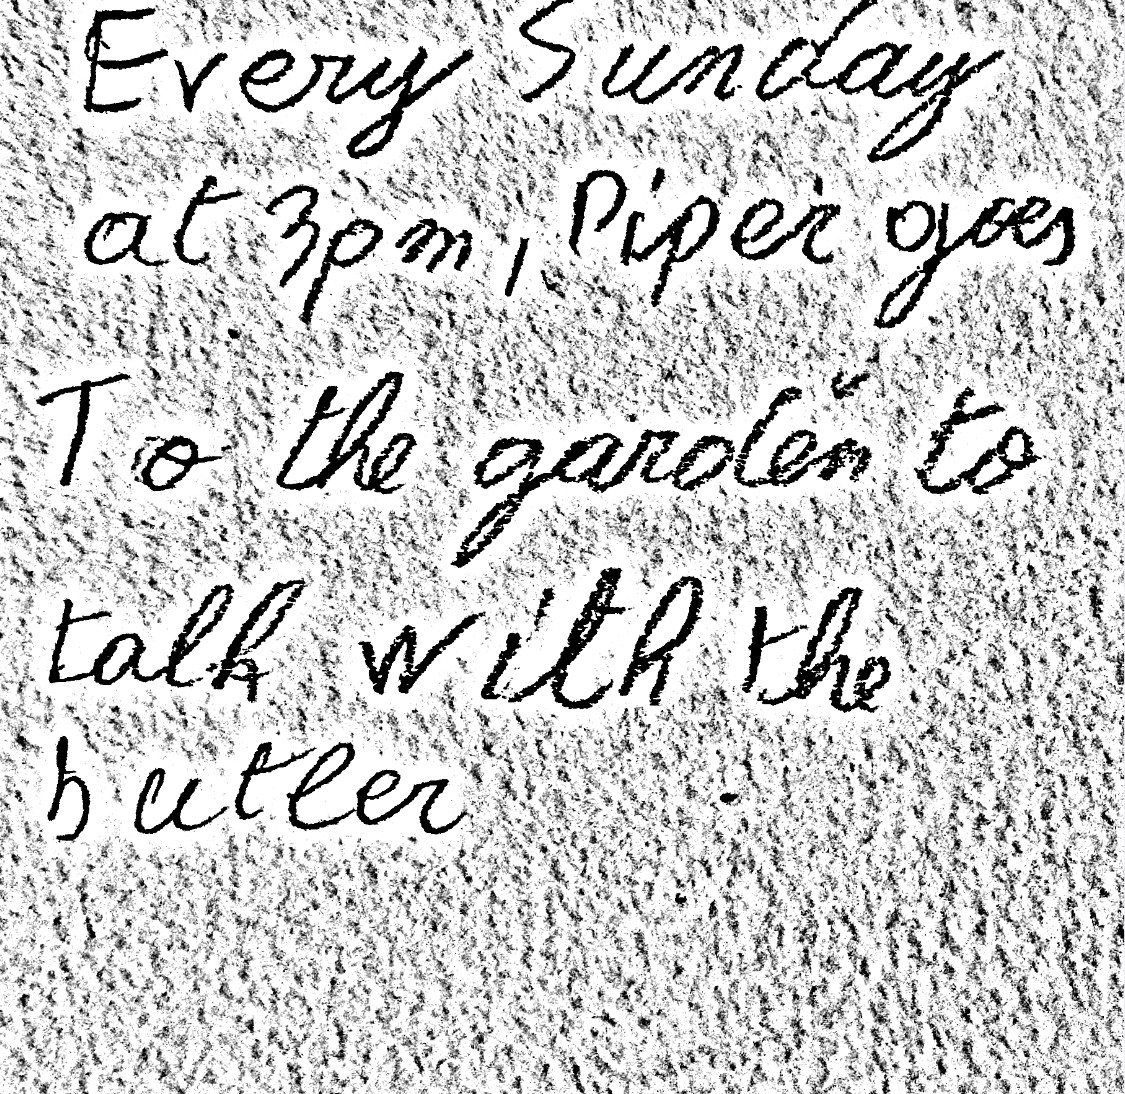 Every Sunday
at 3pm, Piper goes
To the garden to
talk with the
butler